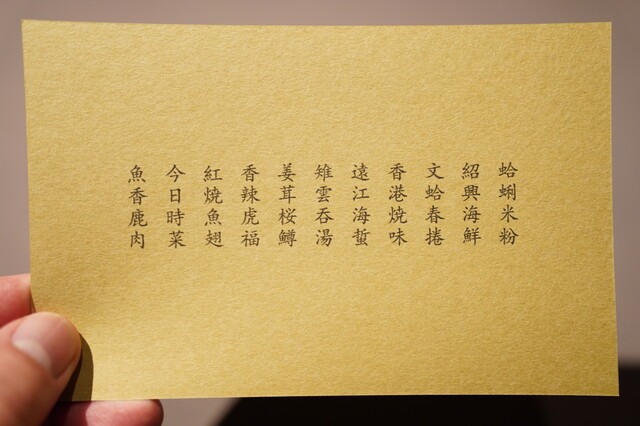 蛤蜊米粉
紹興海鮮
文蛤春捲
香港焼味
遠江海蜇
雉雲呑湯
姜茸桜鱒
香辣虎福
紅焼魚翅
今日時菜
魚香鹿肉